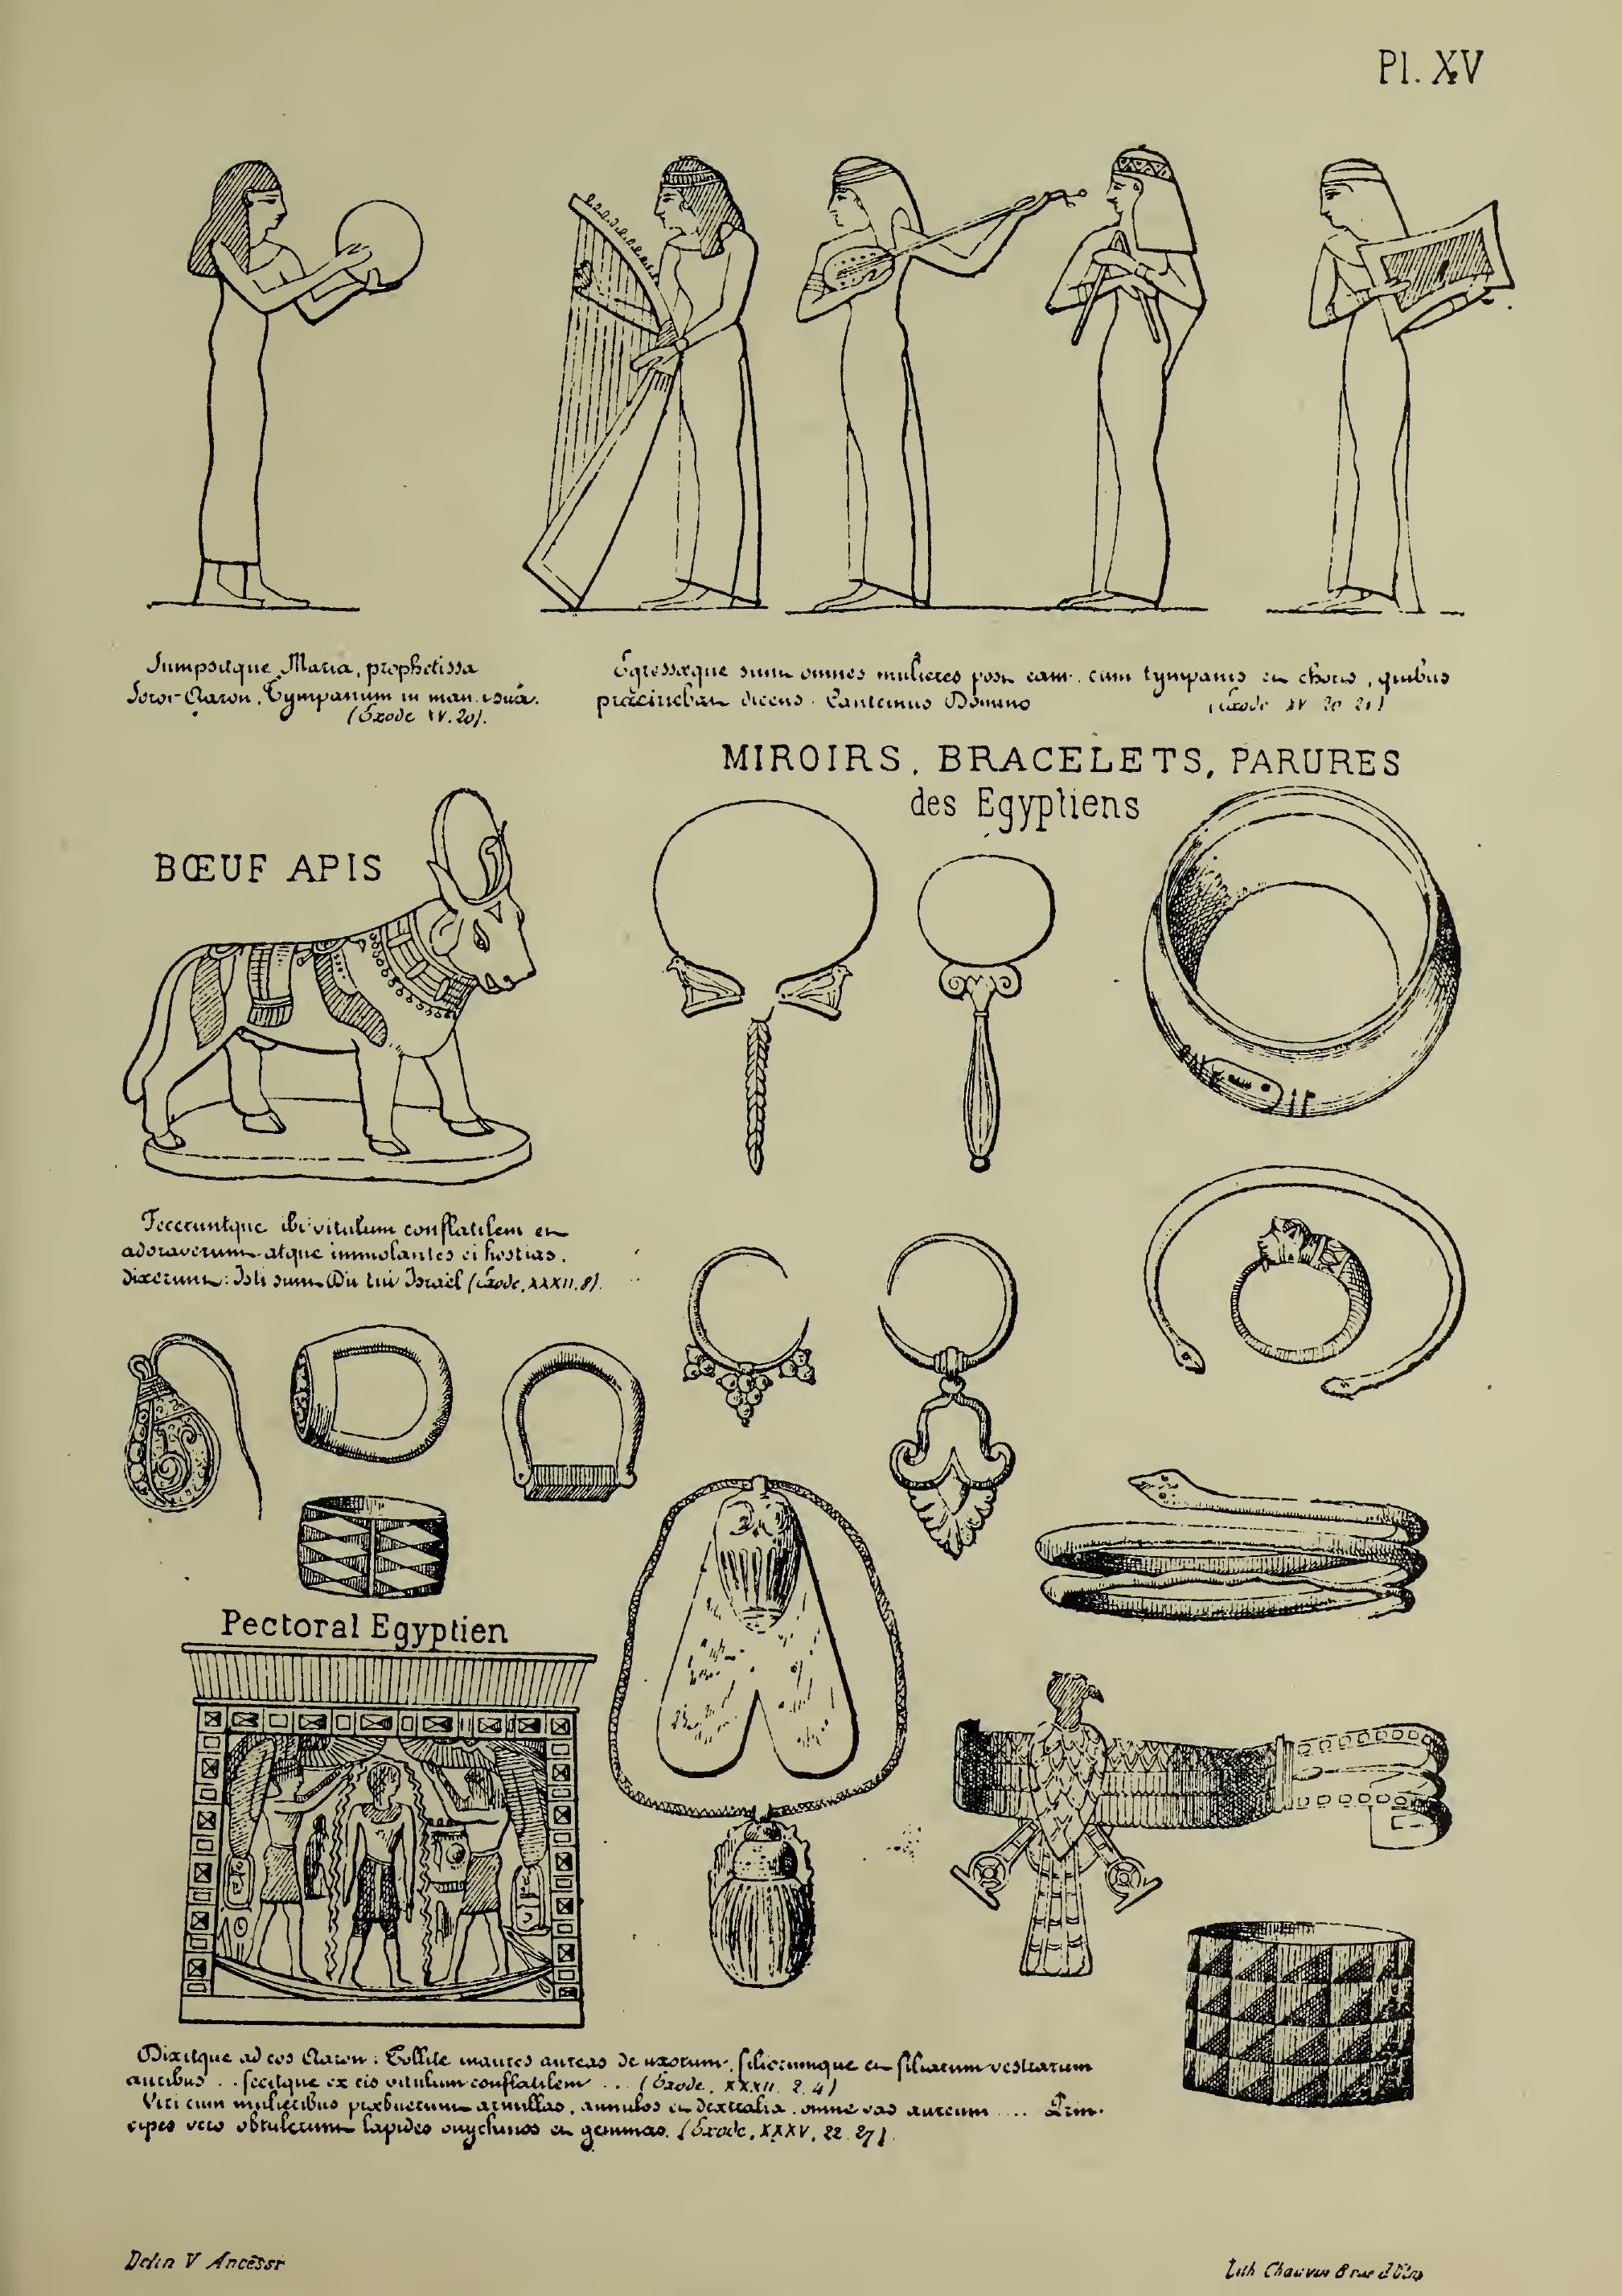 Pl. XV
Sumpsitque Maria, prophetissa
Soror Aaron, Tympanum in man. suâ.
(Exode XV. 20).
Egressæque sunt omnes mulieres post eam. cum tympanis et choris, quibus
præcinebat dicens. Cantemus Domino
(Exode XV 20 21)
MIROIRS, BRACELETS, PARURES
des Egyptiens
BŒUF APIS
Feceruntque ibi vitulum conflatilem et
adoraverunt atque immolantes ei hostias.
dixerunt: Isti sunt Dii tui Israel (Exode, XXXII. 8).
Pectoral Egyptien
Dixitque ad eos Aaron: Tollite inaures aureas de uxorum, filiorumque et filiarum vestrarum
auribus .. fecitque ex eis vitulum conflatilem ... (Exode. XXXII. 2. 4)
Viri cum mulieribus præbuerunt armillas, annulos et dextralia. omne vas aureum .... Prin-
cipes vero obtulerunt lapides onychinos et gemmas. (Exode, XXXV, 22. 27).
Delin V Ancessi
Lith Chauvin 8 rue d'